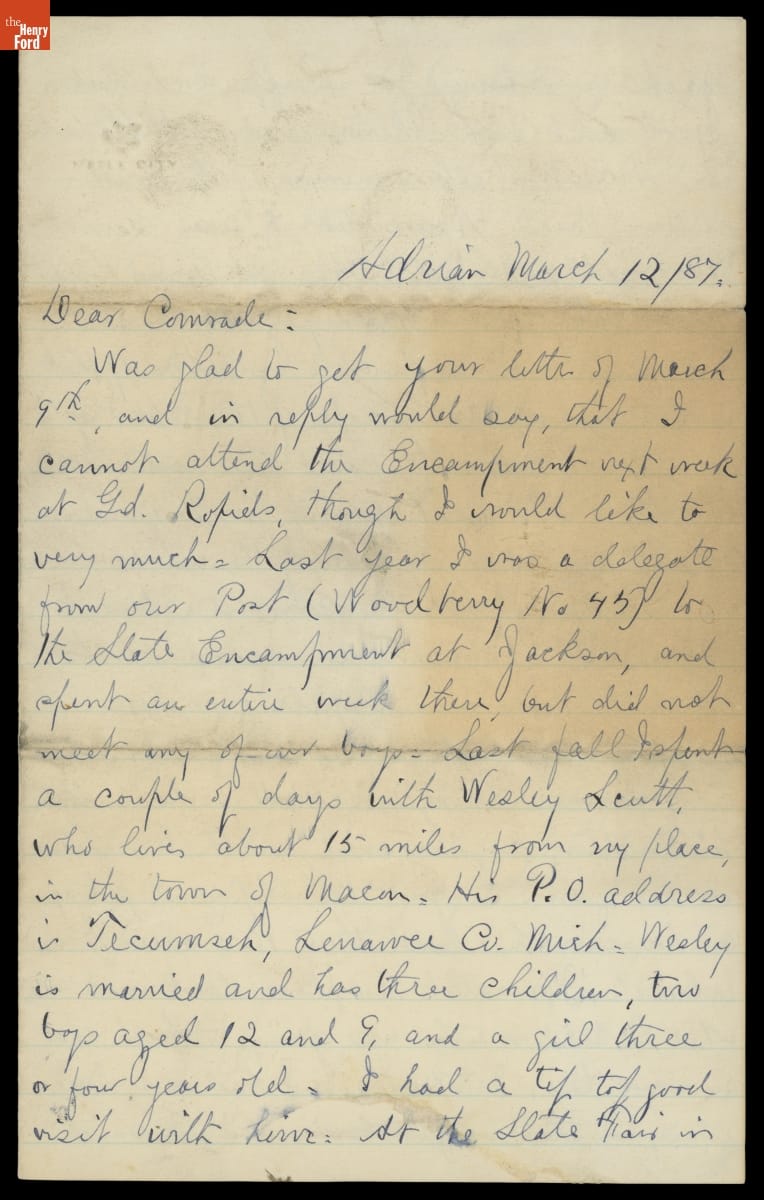 the
Henry
Ford
Adrian March 12/87.
Dear Comrade:
Was glad to get your letter of March
9th, and in reply would say, that I
cannot attend the Encampment next week
at Gd. Rapids, though I would like to
very much = Last year I was a delegate
from our Post (Woodberry No 45) to
the State Encampment at Jackson, and
spent an entire week there, but did not
meet any of our boys = Last fall I spent
a couple of days with Wesley Scutt,
who lives about 15 miles from my place,
in the town of Macon = His P.O. address
is Tecumseh, Lenawee Co. Mich = Wesley
is married and has three children, two
boys aged 12 and 9, and a girl three
or four years old = I had a tip top good
visit with him = At the State Fair in